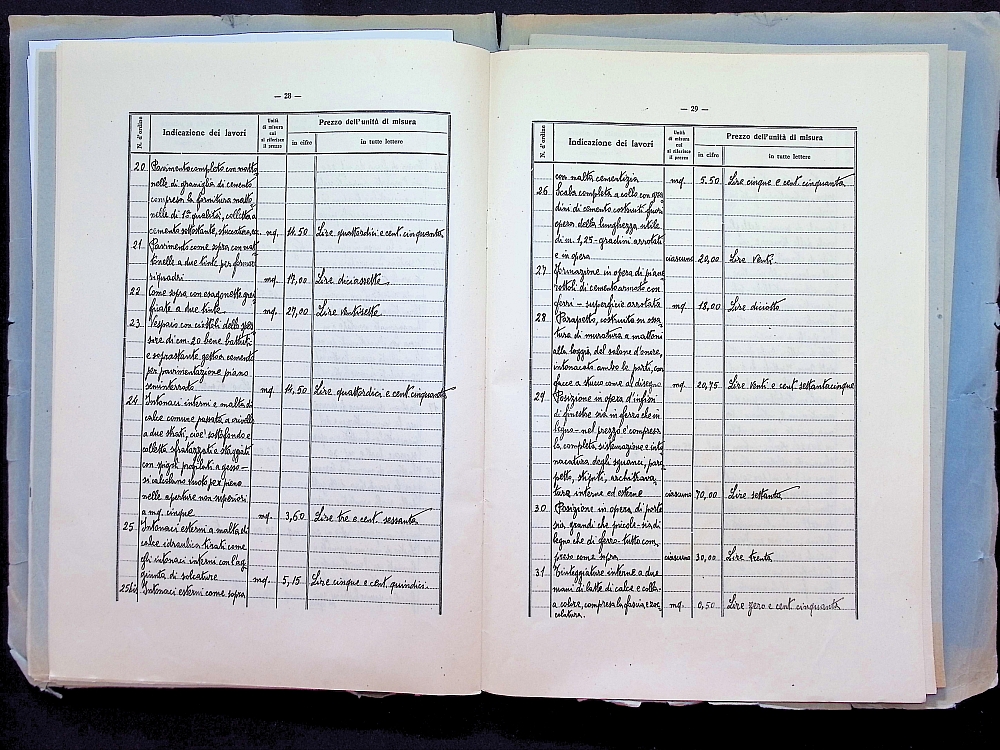 — 28 —
N. d'ordine
Indicazione dei lavori
Unità di misura cui si riferisce il prezzo
Prezzo dell'unità di misura
in cifre
in tutte lettere
20 Pavimento completo con matto
nelle di graniglia di cemento
compresa la fornitura matto
nelle di 1ª qualità, colletta a
cemento sottostante, stuccatura, ec. mq. 14.50 Lire quattordici e cent. cinquanta
21 Pavimento come sopra con mat
tonelle a due tinte per formar
riquadri mq. 17,00 Lire diciassette
22 Come sopra con esagonette graf
fiate a due tinte mq. 27,00 Lire ventisette
23 Vespaio con ciottoli dello spes
sore di cm. 20 bene battuti
e soprastante gettio cemento
per pavimentazione piano
seminterrato mq. 14,50 Lire quattordici e cent. cinquanta
24 Intonaci interni e malta di
calce comune passata a crivello
a due strati, cioè sottofondo e
colletta sfratazzati e staggiati
con spigoli profilati a gesso —
si calcolano vuoto per pieno
nelle aperture non superiori
a mq. cinque mq. 3,60 Lire tre e cent. sessanta
25 Intonaci esterni a malta di
calce idraulica tirati come
gli intonaci interni con l'ag
giunta di solcature mq. 5,15 Lire cinque e cent. quindici.
25bis Intonaci esterni come sopra
— 29 —
N. d'ordine
Indicazione dei lavori
Unità di misura cui si riferisce il prezzo
Prezzo dell'unità di misura
in cifre
in tutte lettere
con malta cementizia mq. 5.50 Lire cinque e cent. cinquanta
26 Scala completa a collo con gra
dini di cemento costruiti fuori
opera della lunghezza utile
di m. 1,25 - gradini arrotati
e in opera ciascuno 20,00 Lire Venti.
27 Formazione in opera di piane
rottoli di cemento armato con
ferri — superficie arrotata mq. 18,00 Lire diciotto
28 Parapetto, costruito in ossa
tura di muratura a mattoni
alla loggia, del salone d'onore,
intonacato ambo le parti, con
facce a stucco come al disegno mq. 20,75 Lire venti e cent settantacinque
29 Posizione in opera d'infissi
di finestre sia in ferro che in
legno - nel prezzo è compresa
la completa sistemazione e into
nacatura degli sguanci, para
petto, stipiti, architrava
tura interne ed esterne ciascuna 70,00 Lire settanta
30 Posizione in opera di porte
sia grandi che piccole - sia di
legno che di ferro - tutto com
preso come sopra ciascuna 30,00 Lire trenta
31 Tinteggiature interne a due
mani di latte di calce e colla -
a colore, compresa la fascia e zoc
colatura. mq. 0,50 Lire zero e cent. cinquanta